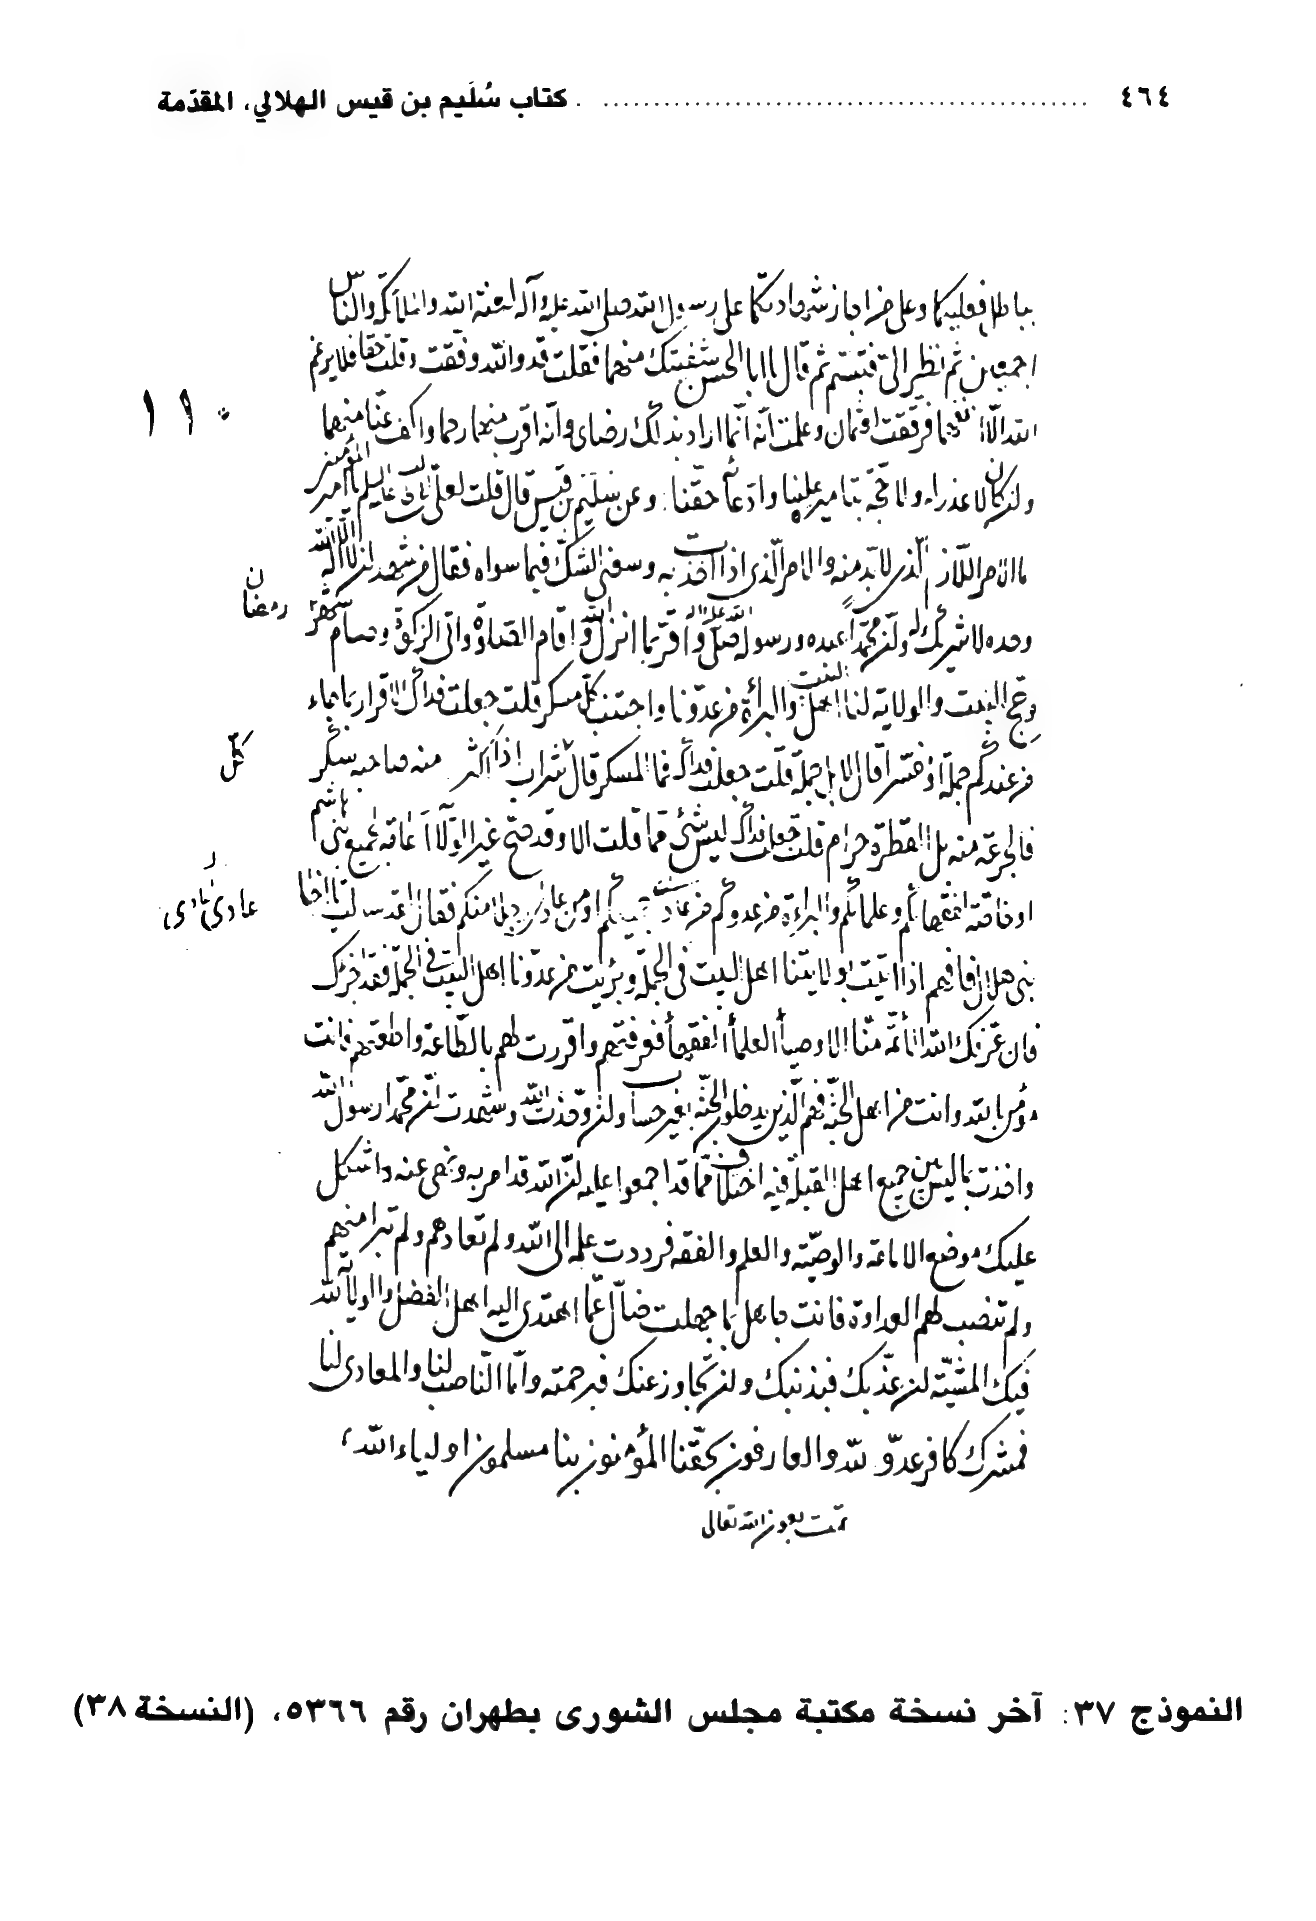 ٤٦٤ ........ كتاب سُلَيم بن قيس الهلالي، المقدّمة
بباطل فعليكما وعلى من اجاز شهادتكما على رسول الله صلى الله عليه وآله لعنة الله والملائكة والناس
اجمعين ثم نظر الىّ فتبسّم ثم قال يا ابا الحسن شفيتك منهما فقلت قد والله وفقت وقلت حقا فلا يرغم
الله الّا انفهما فرققت لعثمان وعلمت انّه انّما اراد بذلك رضاى وانّه اقرب منهما رحما واكف عنّا منهما
ولن كان لا عذر له ولا حجّة بتاميره علينا وادعائه حقّنا وعن سليم بن قيس قال قلت لعلىّ بن ابى طالب عليه السلم يا امير المؤمنين
ما الامر اللازم الذى لا بدّ منه والامر الّذى اذا اخذت به وسعنى الشكّ فيما سواه فقال من شهد ان لا اله الّا الله
وحده لا شريك له ولن محمّدا عبده ورسوله صلى الله عليه واله واقرّ بما انزل الله واقام الصلوة واتى الزكوة وصام شهر
رمضان
وحج البيت والولاية لنا اهل البيت والبرأة من عدوّنا واجتنب كلّ مسكر قلت جعلت فداك الاقرار بما جاء
من عندكم جملة او مفسّرا قال لا بل جملة قلت جعلت فداك فما المسكر قال كلّ شراب اذا اكثر منه صاحبه سكر
كلّ
فالجرعة منه بل القطرة حرام قلت جعلت فداك ليس شئ ممّا قلت الا وقد صحّ غير الولاء اعامّة لجميع بنى هاشم
او خاصّة لفقهائكم وعلمائكم والبراءة من عدوكم من عادى جميعكم او من عادى رجلا منكم فقال لقد سالت يا اخا
عادى
بنى هلال فافهم اذا اتيت بولايتنا اهل البيت فى الجملة وبرئت من عدوّنا اهل البيت فى الجملة فقد اجزك
فان عرّفك الله الائمّة منّا الاوصياء العلماء الفقهاء فعرفتهم واقررت لهم بالطّاعة واطعتهم فانت
مؤمن بالله وانت من اهل الجنّة فهم الّذين يدخلون الجنّة بغير حساب ولن وحّدت الله وشهدت انّ محمّدا رسول الله
واخذت بما ليس بين جميع اهل القبلة فيه اختلاف ممّا قد اجمعوا عليه لنّ الله قد امر به ونهى عنه واشكل
عليك موضع الامامة والوصيّة والعلم والفقه فرددت علمه الى الله ولم تعادهم ولم تبرا منهم
ولم تنصب لهم العداوة فانت جاهل بما جهلت ضالّ عمّا اهتدى اليه اهل الفضل والولاية لله
فيك المشيّة لن عذّبك فبذنبك ولن تجاوز عنك فبرحمته وامّا النّاصب لنا والمعادى لنا
فمشرك كافر عدوّ لله والعارفون بحقّنا المؤمنون بنا مسلمون اولياء الله
تمت بعون الله تعالى
النموذج ٣٧: آخر نسخة مكتبة مجلس الشورى بطهران رقم ٥٣٦٦، (النسخة ٣٨)